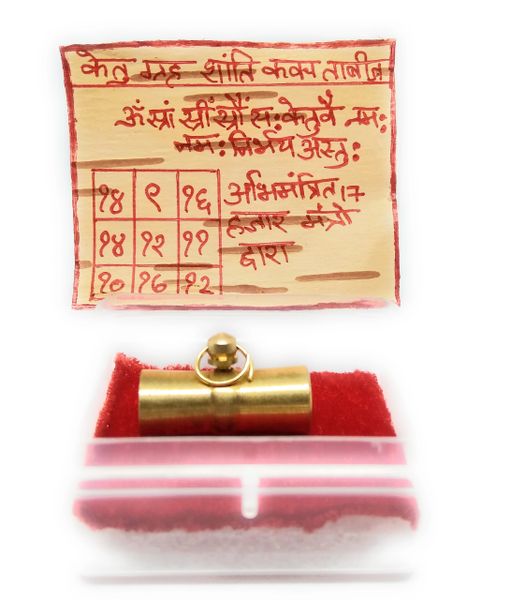 केतु ग्रह शांति कवच ताबीज
ॐ स्रां स्रीं स्रौं स: केतुवै नम:
नम: निर्भय अस्तु:
१४ ९ १६
१४ १२ ११
१० १७ १२
अभिमंत्रित 17
हजार मंत्रो
द्वारा